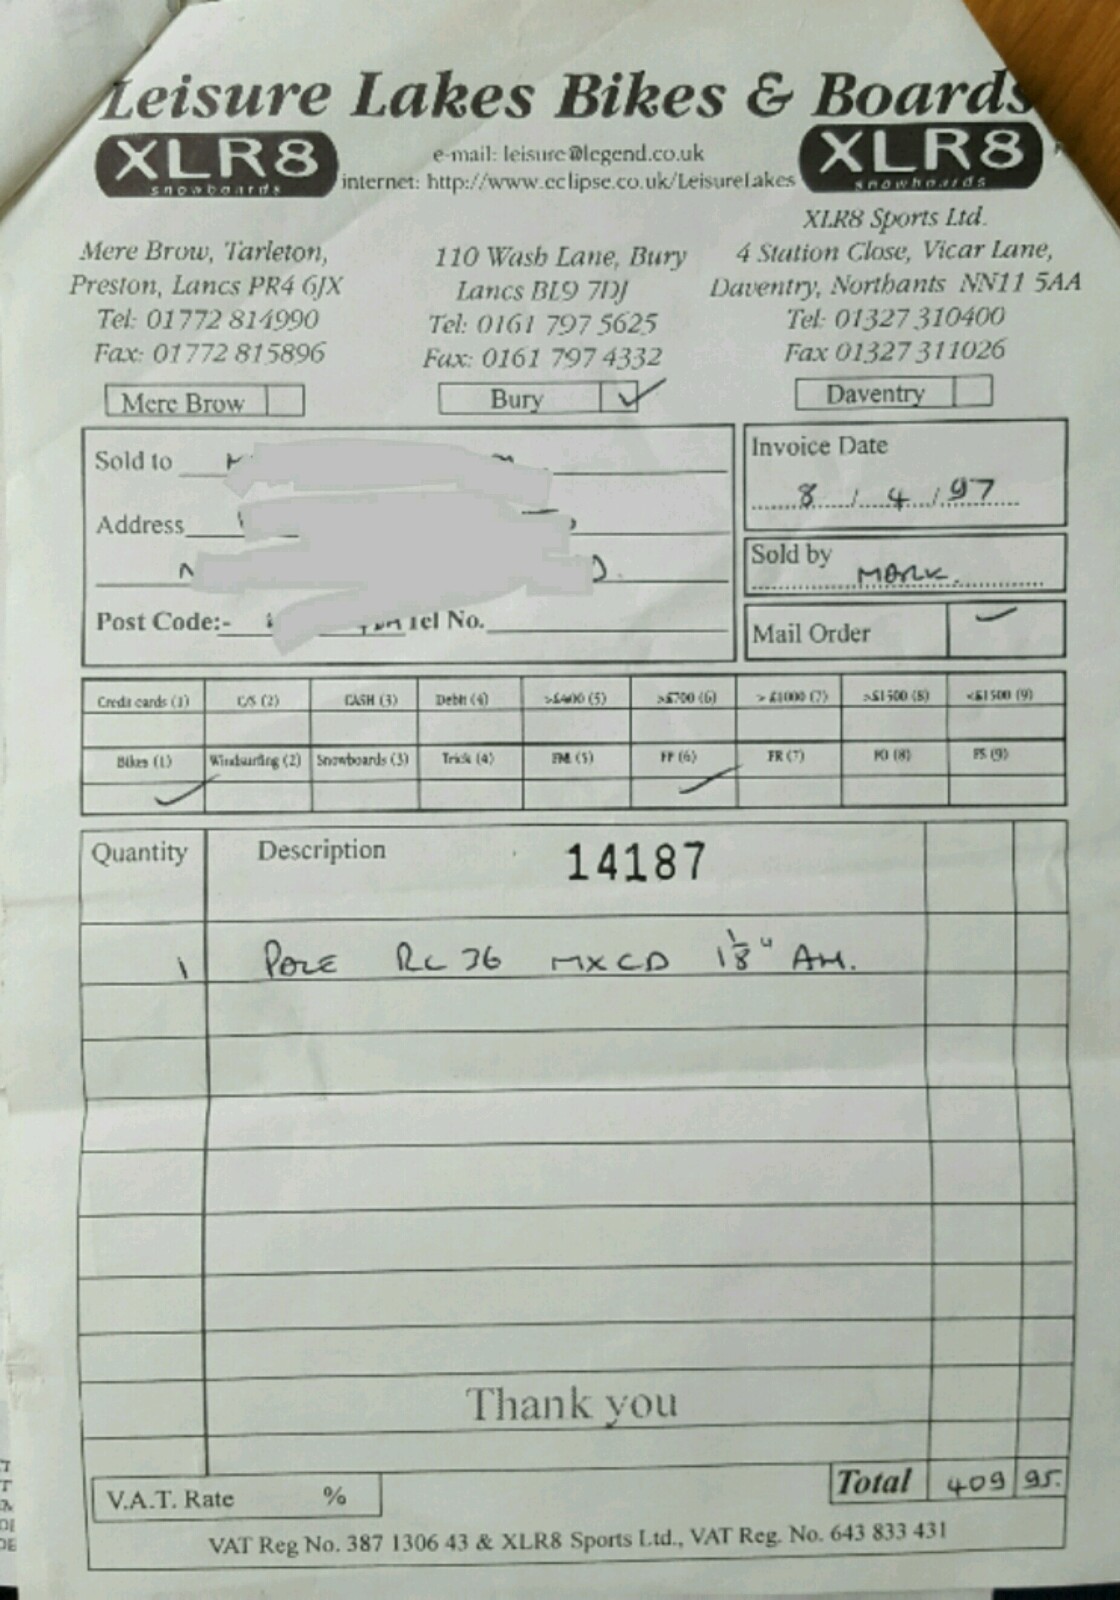 Leisure Lakes Bikes & Boards
XLR8
snowboards
e-mail: leisure@legend.co.uk
internet: http://www.eclipse.co.uk/LeisureLakes
XLR8
snowboards
Mere Brow, Tarleton,
Preston, Lancs PR4 6JX
Tel: 01772 814990
Fax: 01772 815896
110 Wash Lane, Bury
Lancs BL9 7DJ
Tel: 0161 797 5625
Fax: 0161 797 4332
XLR8 Sports Ltd.
4 Station Close, Vicar Lane,
Daventry, Northants NN11 5AA
Tel: 01327 310400
Fax 01327 311026
Mere Brow
Bury ✓
Daventry
Sold to
Address
Post Code:- Tel No.
Invoice Date
8 / 4 / 97
Sold by MARK.
Mail Order ✓
Credit cards (1) C/S (2) CASH (3) Debit (4) >£400 (5) >£700 (6) >£1000 (7) >£1500 (8) <£1500 (9)
Bikes (1) Windsurfing (2) Snowboards (3) Trick (4) FM (5) FP (6) FR (7) FO (8) FS (9)
✓ ✓
Quantity Description 14187
1 PACE RC 36 MXCD 1 1/8" AH.
Thank you
V.A.T. Rate %
Total 409 95.
VAT Reg No. 387 1306 43 & XLR8 Sports Ltd., VAT Reg. No. 643 833 431